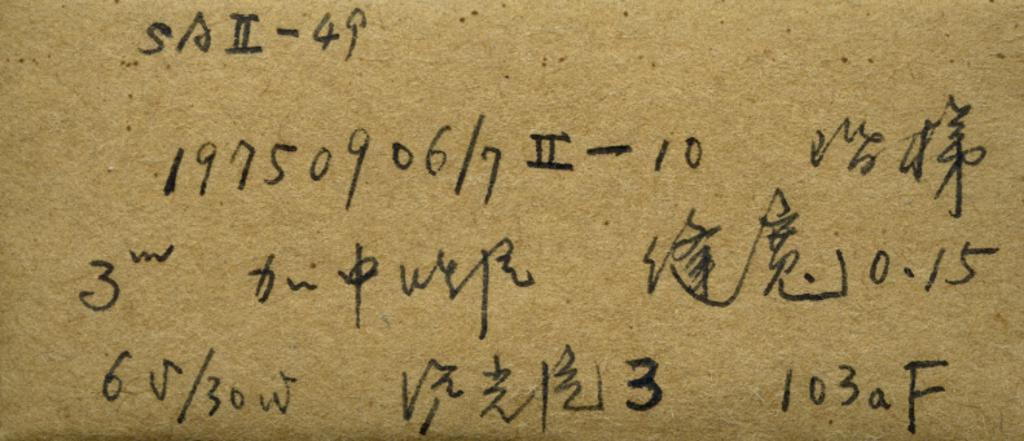 SA II-49
19750906/7 II-10 阶梯
3m 加中性 缝宽 0.15
6V/30W 光 3 103aF